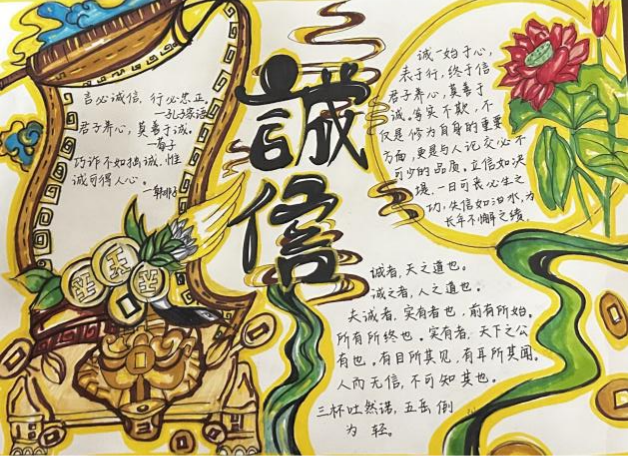 言必诚信，行必忠正。
—孔子家语
君子养心，莫善于诚。
—荀子
巧诈不如拙诚，惟
诚可得人心。
誠信
诚一始于心，
表于行，终于信
君子养心，莫善于
诚。笃实不欺，不
仅是修为自身的重要
方面，更是与人论交必不
可少的品质。立信如决
堤，一日可丧必生之
功，失信如治水，为
长年不懈之绩。
诚者，天之道也。
诚之者，人之道也。
夫诚者，实有者也，前有所始，
所有所终也。实有者，天下之公
有也。有目所其见，有耳所其闻。
人而无信，不可知其也。
三杯吐然诺，五岳倒
为轻。